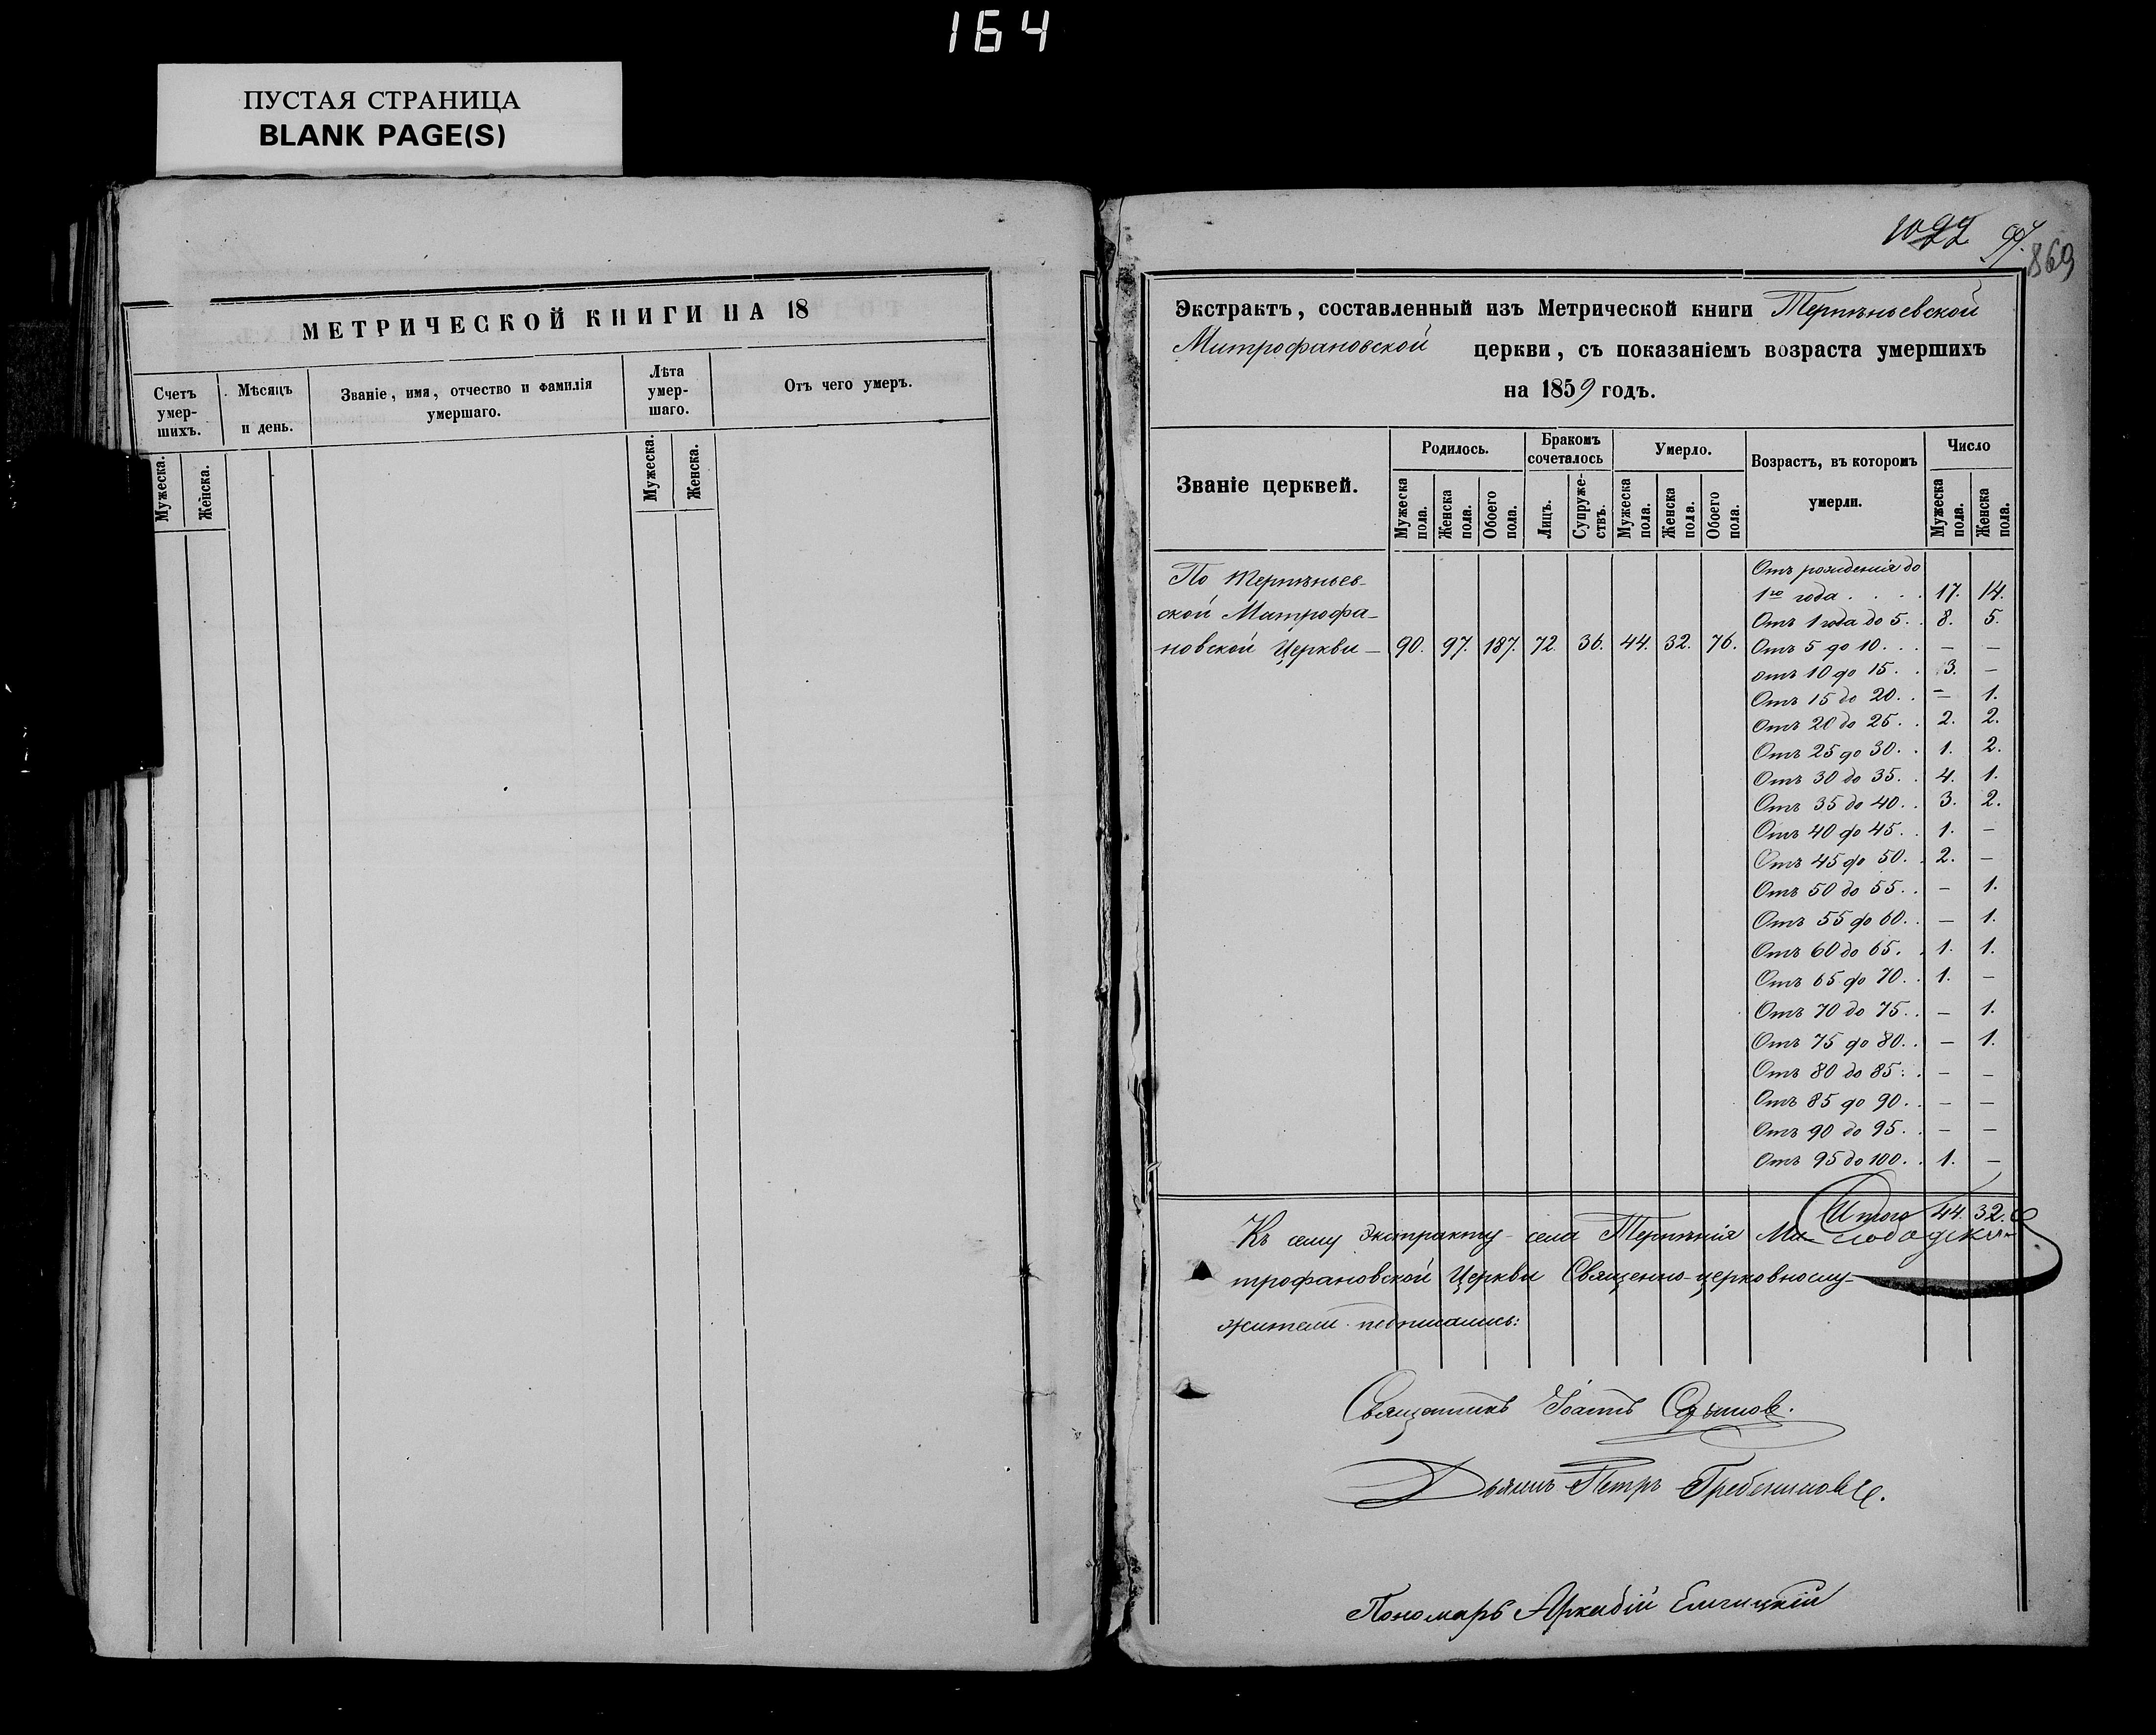 164
ПУСТАЯ СТРАНИЦА
BLANK PAGE(S)
МЕТРИЧЕСКОЙ КНИГИ НА 18
Счетъ умер-шихъ.
Мѣсяцъ и день.
Званіе, имя, отчество и фамилія умершаго.
Лѣта умер-шаго.
Отъ чего умеръ.
Мужеска. Женска. Мужеска. Женска.
1022 97.
869
Экстрактъ, составленный изъ Метрической книги Терпѣньевской
Митрофановской церкви, съ показаніемъ возраста умершихъ
на 1859 годъ.
Званіе церквей.
Родилось. Бракомъ сочеталось Умерло. Возрастъ, въ которомъ умерли. Число
Мужеска пола. Женска пола. Обоего пола. Лицъ. Супруже-ствъ. Мужеска пола. Женска пола. Обоего пола. Мужеска пола. Женска пола.
По Терпѣньев-
ской Митрофа-
новской Церкви — 90. 97. 187. 72. 36. 44. 32. 76.
Отъ рожденія до
1го года . . . . 17. 14.
Отъ 1 года до 5. . 8. 5.
Отъ 5 до 10. . . — —
отъ 10 до 15. . 3. —
Отъ 15 до 20. . — 1.
Отъ 20 до 25. . 2. 2.
Отъ 25 до 30. . 1. 2.
Отъ 30 до 35. . 4. 1.
Отъ 35 до 40. . 3. 2.
Отъ 40 до 45. . 1. —
Отъ 45 до 50. . 2. —
Отъ 50 до 55. . — 1.
Отъ 55 до 60. . — 1.
Отъ 60 до 65. . 1. 1.
Отъ 65 до 70. . 1. —
Отъ 70 до 75. . — 1.
Отъ 75 до 80. . — 1.
Отъ 80 до 85. . — —
Отъ 85 до 90. . — —
Отъ 90 до 95. . — —
Отъ 95 до 100. . 1. —
Итого 44. 32.
Къ сему экстракту села Терпѣнія Ми-
трофановской Церкви Священно-церковнослу-
жители подписались:
Священникъ Іоаннъ
Дьячокъ Петръ Гребенниковъ.
Пономарь Аркадій